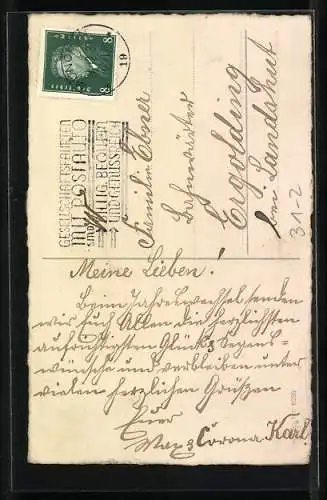 8 8
19
GESELLSCHAFTSFAHRTEN
MIT POSTAUTO
SIND BILLIG, BEQUEM
UND GENUSSREICH
Familie Ebner
Bahnwärter
Ergolding
bei Landshut
31-2
Meine Lieben!
Beim Jahreswechsel senden
wir Euch Allen die herzlichsten
aufrichtigsten Glück & Segens-
wünsche und verbleiben unter
vielen herzlichen Grüßen
Euer
Max & Corona. Karl